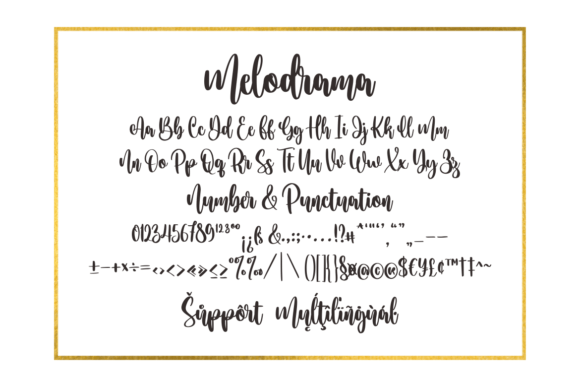 Melodrama
Aa Bb Cc Dd Ee Ff Gg Hh Ii Jj Kk Ll Mm
Nn Oo Pp Qq Rr Ss Tt Uu Vv Ww Xx Yy Zz
Number & Punctuation
0123456789¹²³⁰⁰ ¡¿ß &.,:;·…!?# ‘’“” „_–—
±−+×÷=‹›<>«»≤≥°%‰/|\()[]{}§®@©¤$€¥£¢™†‡^~
Šůppôrt Mųľţïlïñġùáľ